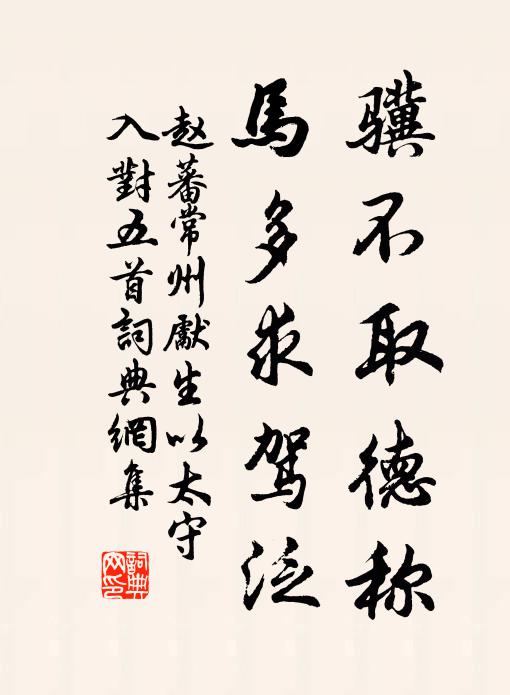 骥不取德称
馬多求驾泛
赵蕃常州獻生以太守
入對五首詞典網集
詞典網印